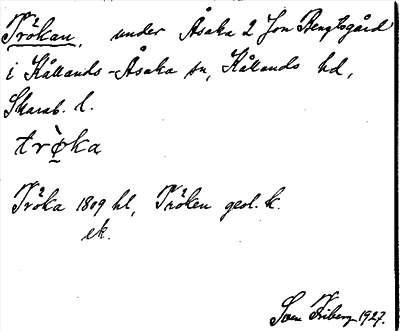 Trökan, under Åsaka 2 Jon Bengtsgård
i Kållands-Åsaka sn, Kållands hd,
Skarab. l.
trø̀ka
Tröka 1809 hl, Tröken geol. k.
ek.
Sven Friberg 1927.